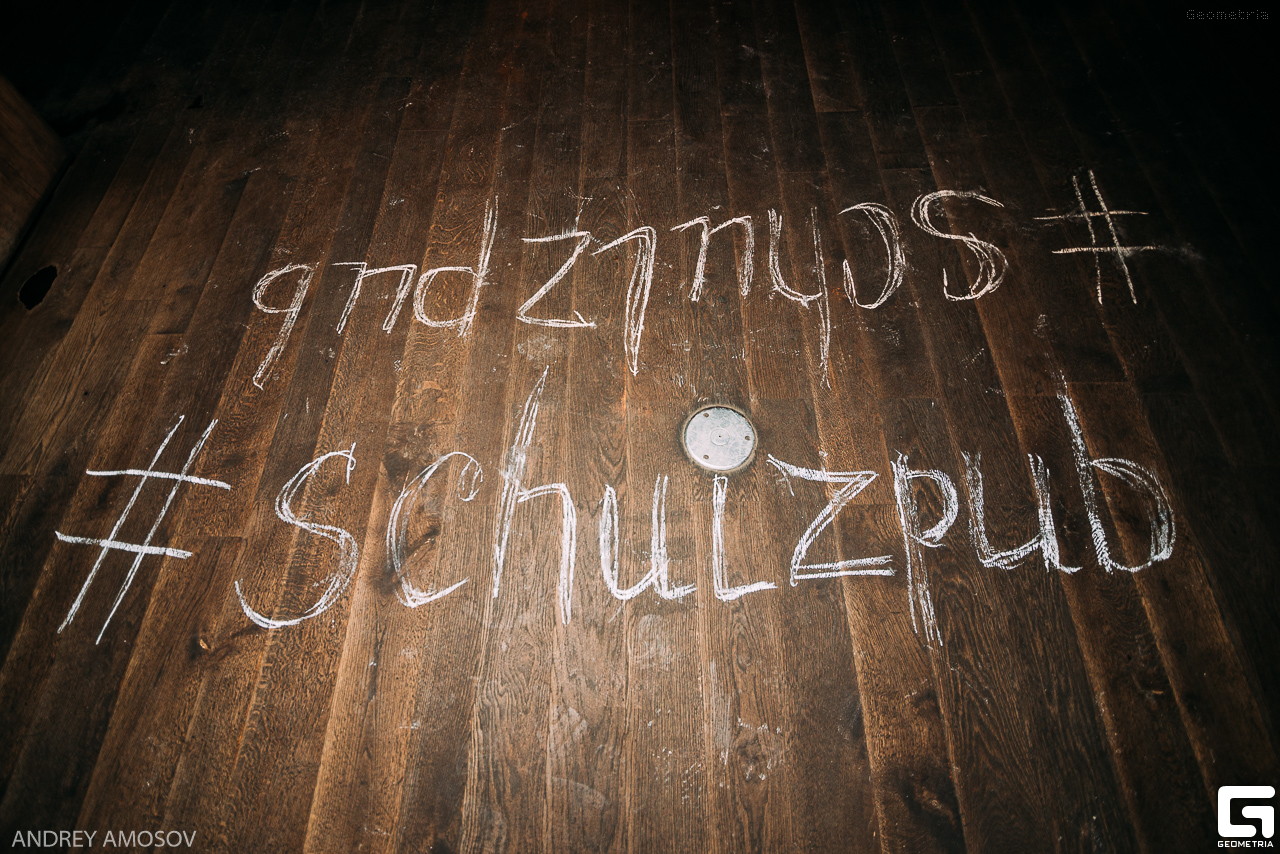 Geometria
#schulzpub
#schulzpub
ANDREY AMOSOV
GEOMETRIA